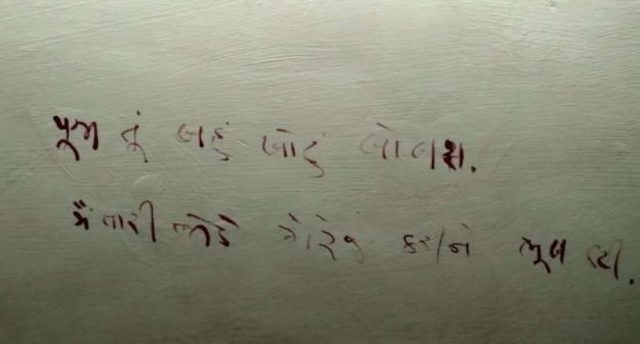 પૂજા તું બહું ખોટું બોલછ.
મેં તારી જોડે મેરેજ કરીને ભૂલ કરી.